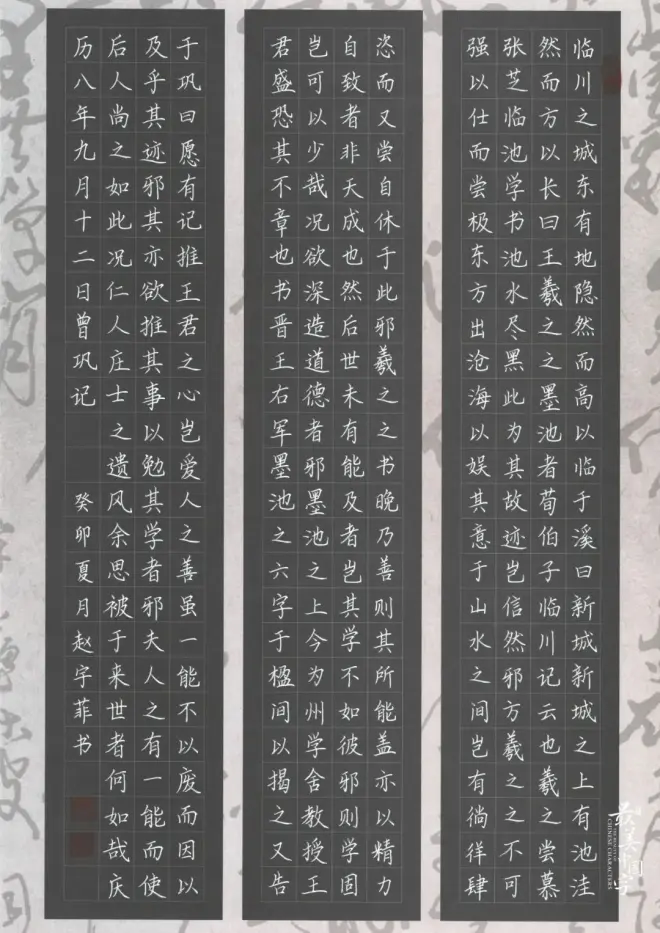 临川之城东有地隐然而高以临于溪曰新城新城之上有池洼
然而方以长曰王羲之之墨池者荀伯子临川记云也羲之尝慕
张芝临池学书池水尽黑此为其故迹岂信然邪方羲之之不可
强以仕而尝极东方出沧海以娱其意于山水之间岂有徜徉肆
恣而又尝自休于此邪羲之之书晚乃善则其所能盖亦以精力
自致者非天成也然后世未有能及者岂其学不如彼邪则学固
岂可以少哉况欲深造道德者邪墨池之上今为州学舍教授王
君盛恐其不章也书晋王右军墨池之六字于楹间以揭之又告
于巩曰愿有记推王君之心岂爱人之善虽一能不以废而因以
及乎其迹邪其亦欲推其事以勉其学者邪夫人之有一能而使
后人尚之如此况仁人庄士之遗风余思被于来世者何如哉庆
历八年九月十二日曾巩记 癸卯夏月赵宇菲书
最美中国字
CHINESE CHARACTERS